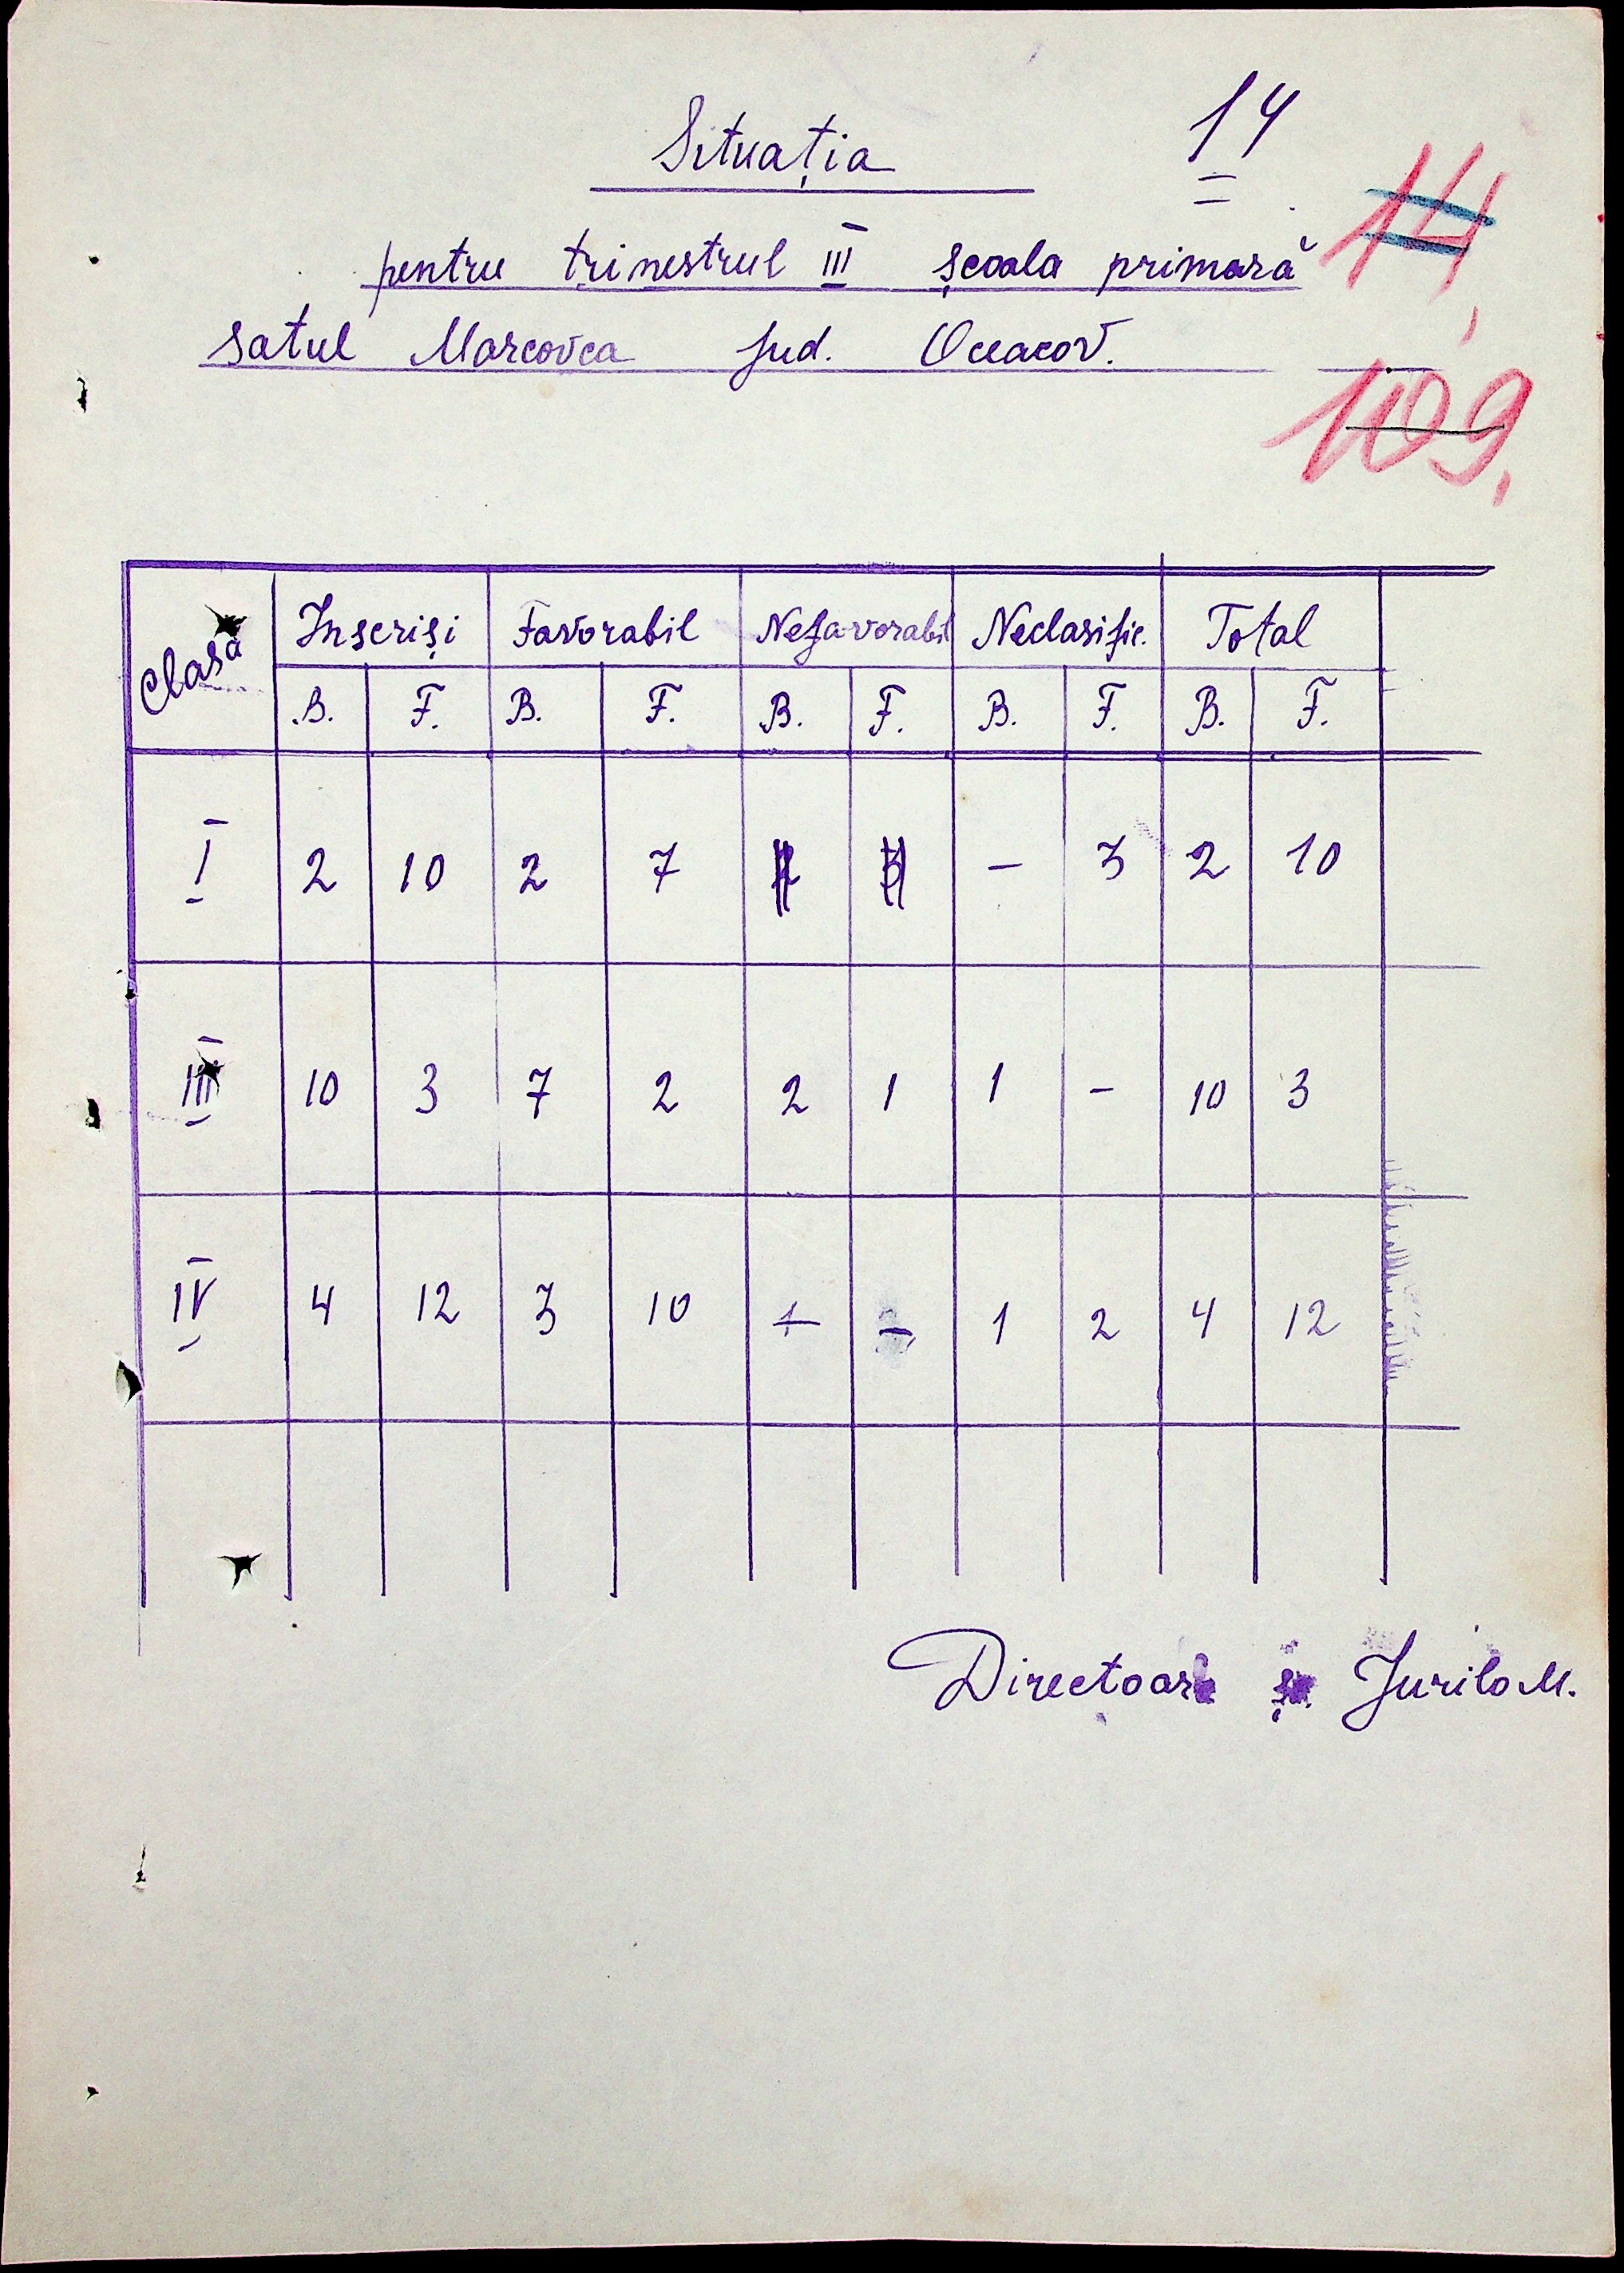 Situația
14
14,
pentru trimestrul III școala primară
satul Marcovca jud. Oceacov.
109,
Clasa Inscriși Favorabil Nefavorabil Neclasific. Total
B. F. B. F. B. F. B. F. B. F.
I 2 10 2 7 - 3 2 10
III 10 3 7 2 2 1 1 - 10 3
IV 4 12 3 10 1 - 1 2 4 12
Directoare Jurilo M.